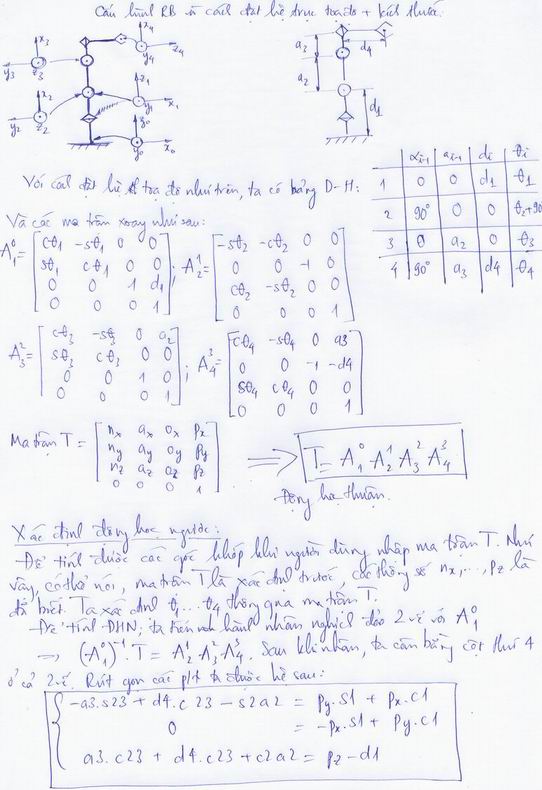 Cấu hình RB và cách đặt hệ trục toạ độ + kích thước.
x3 y3 z3
x4 z4 y4
x2 y2 z2
z1 y1 x1
z0 y0 x0
a3 d4
a2
d1
αi-1 ai-1 di θi
1 0 0 d1 θ1
2 90° 0 0 θ2+90
3 0 a2 0 θ3
4 90° a3 d4 θ4
Với cách đặt hệ toạ độ như trên, ta có bảng D-H:
Và các ma trận xoay như sau:
A₁⁰ = [cθ1 -sθ1 0 0
sθ1 cθ1 0 0
0 0 1 d1
0 0 0 1]
; A₂¹ = [-sθ2 -cθ2 0 0
0 0 -1 0
cθ2 -sθ2 0 0
0 0 0 1]
A₃² = [cθ3 -sθ3 0 a2
sθ3 cθ3 0 0
0 0 1 0
0 0 0 1]
; A₄³ = [cθ4 -sθ4 0 a3
0 0 -1 -d4
sθ4 cθ4 0 0
0 0 0 1]
Ma trận T = [nx ax ox px
ny ay oy py
nz az oz pz
0 0 0 1]
⟹ T = A₁⁰ A₂¹ A₃² A₄³
Động học thuận.
Xác định động học ngược:
- Để tính được các góc khớp khi người dùng nhập ma trận T. Như
vậy, có thể nói, ma trận T là xác định trước, các thông số nx,..., pz là
đã biết. Ta xác định θ1...θ4 thông qua ma trận T.
- Để tính ĐHN, ta tiến hành nhân nghịch đảo 2 vế với A₁⁰
⇒ (A₁⁰)⁻¹.T = A₂¹.A₃².A₄³. Sau khi nhân, ta cân bằng cột thứ 4
ở cả 2 vế. Rút gọn các p/t ta được hệ sau:
{ -a3.s23 + d4.c23 - s2a2 = py.s1 + px.c1
0 = -px.s1 + py.c1
a3.c23 + d4.c23 + c2a2 = pz - d1